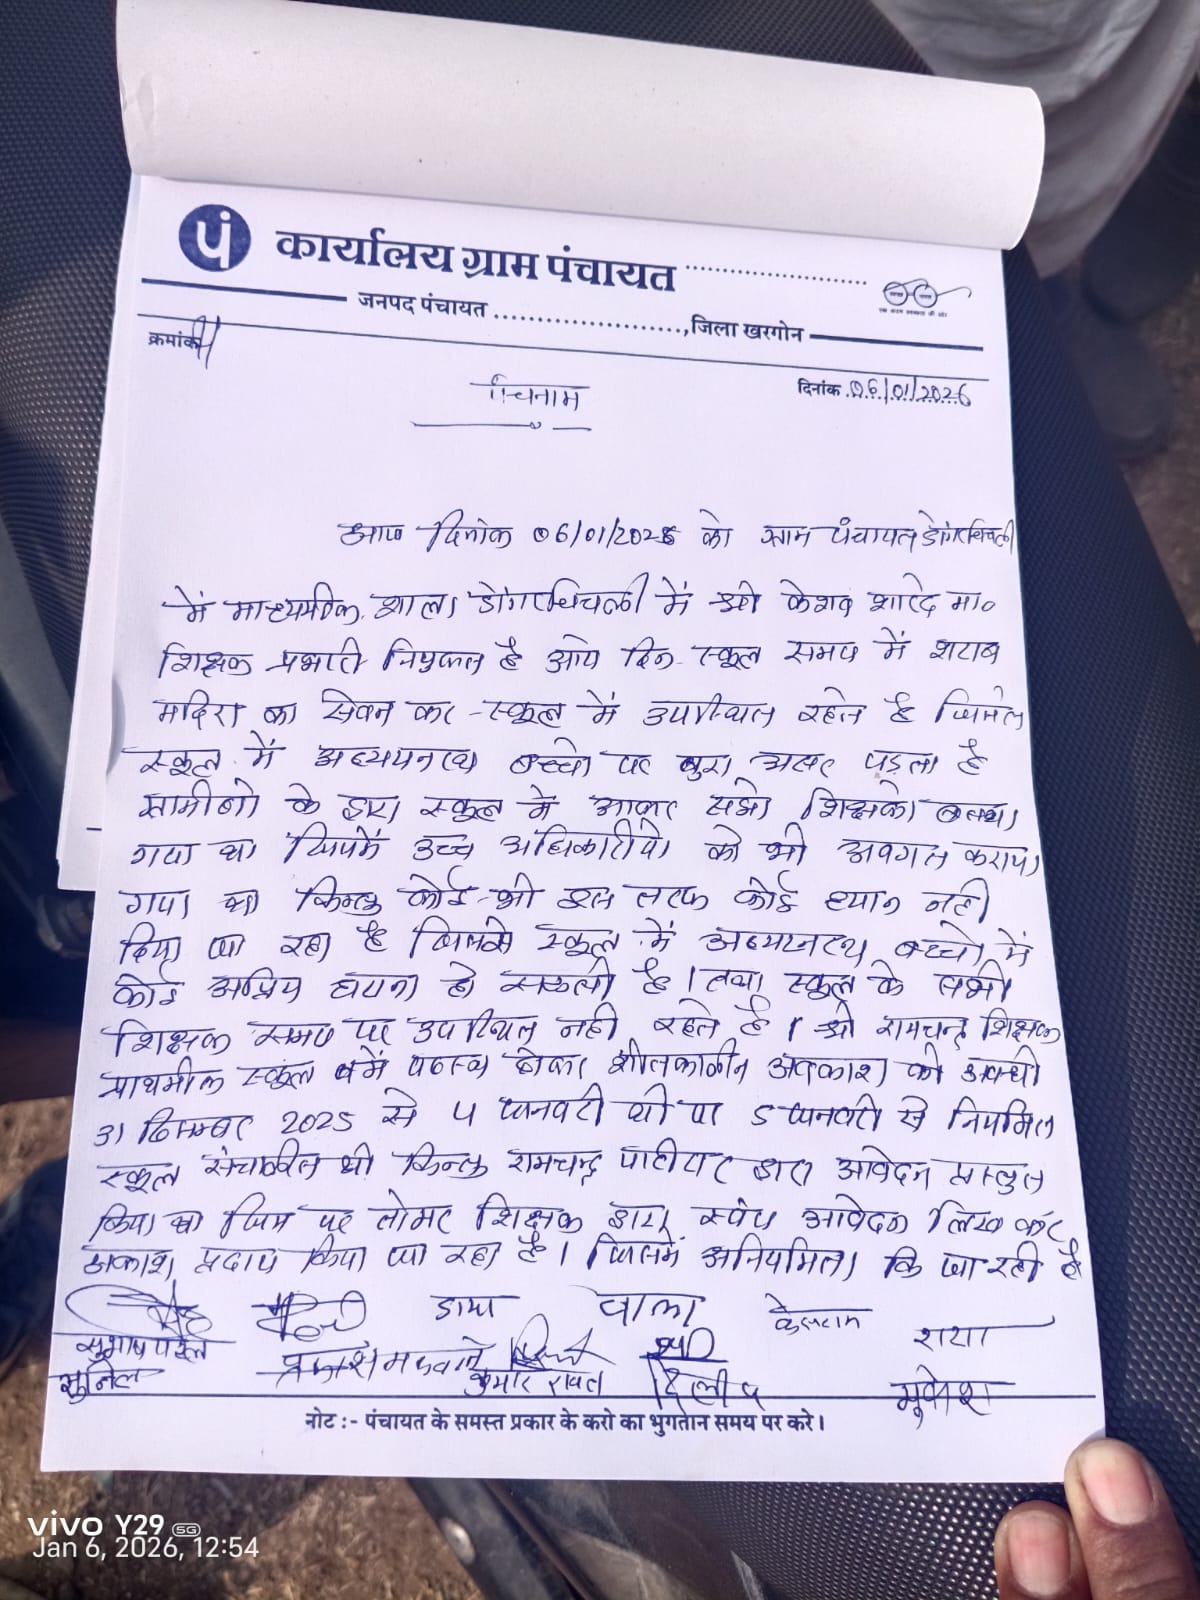 पं कार्यालय ग्राम पंचायत ....................
जनपद पंचायत ........................, जिला खरगोन
क्रमांक
दिनांक 06/01/2026
पंचनामा
आज दिनांक 06/01/2026 को ग्राम पंचायत डोंगरचिचली
में माध्यमिक शाला डोंगरचिचली में श्री केशव शारदे मा०
शिक्षक प्रभारी नियुक्त है आये दिन स्कूल समय में शराब
मदिरा का सेवन कर स्कूल में उपस्थित रहेते है जिसेसे
स्कूल में अध्ययनरथ बच्चो पर बुरा असर पड़ता है
ग्रामीणो के द्वारा स्कूल मे आकर सभी शिक्षको बताया
गया था जिसमें उच्च अधिकारीयो को भी अवगत कराया
गया था किन्तु कोई भी इस तरफ कोई ध्यान नही
दिया जा रहा है जिससे स्कूल में अध्ययनरथ बच्चो में
कोई अप्रिय घटना हो सकती है । तथा स्कूल के सभी
शिक्षक समय पर उपस्थित नही रहेते है । श्री रामचन्द्र शिक्षक
प्राथमीक स्कूल में पदस्थ होकर शीतकालीन अवकाश की अवधी
31 दिसम्बर 2025 से 4 जनवरी थी पर 5 जनवरी से नियमित
स्कूल संचालीत थी किन्तु रामचन्द्र पाटीदार द्वारा आवेदन प्रस्तुत
किया था जिस पर तोमर शिक्षक द्वारा स्वंय आवेदन लिख कर
अवकाश प्रदाय किया जा रहा है । जिसमें अनियमिता कि जा रही है
सुभाष पटेल
डाया
वाला
केलराम
राया
सुनिल
प्रकाश मकवाने
कुमार रावत
दिलीप
मुकेश
नोट :- पंचायत के समस्त प्रकार के करो का भुगतान समय पर करे ।
vivo Y29 5G
Jan 6, 2026, 12:54